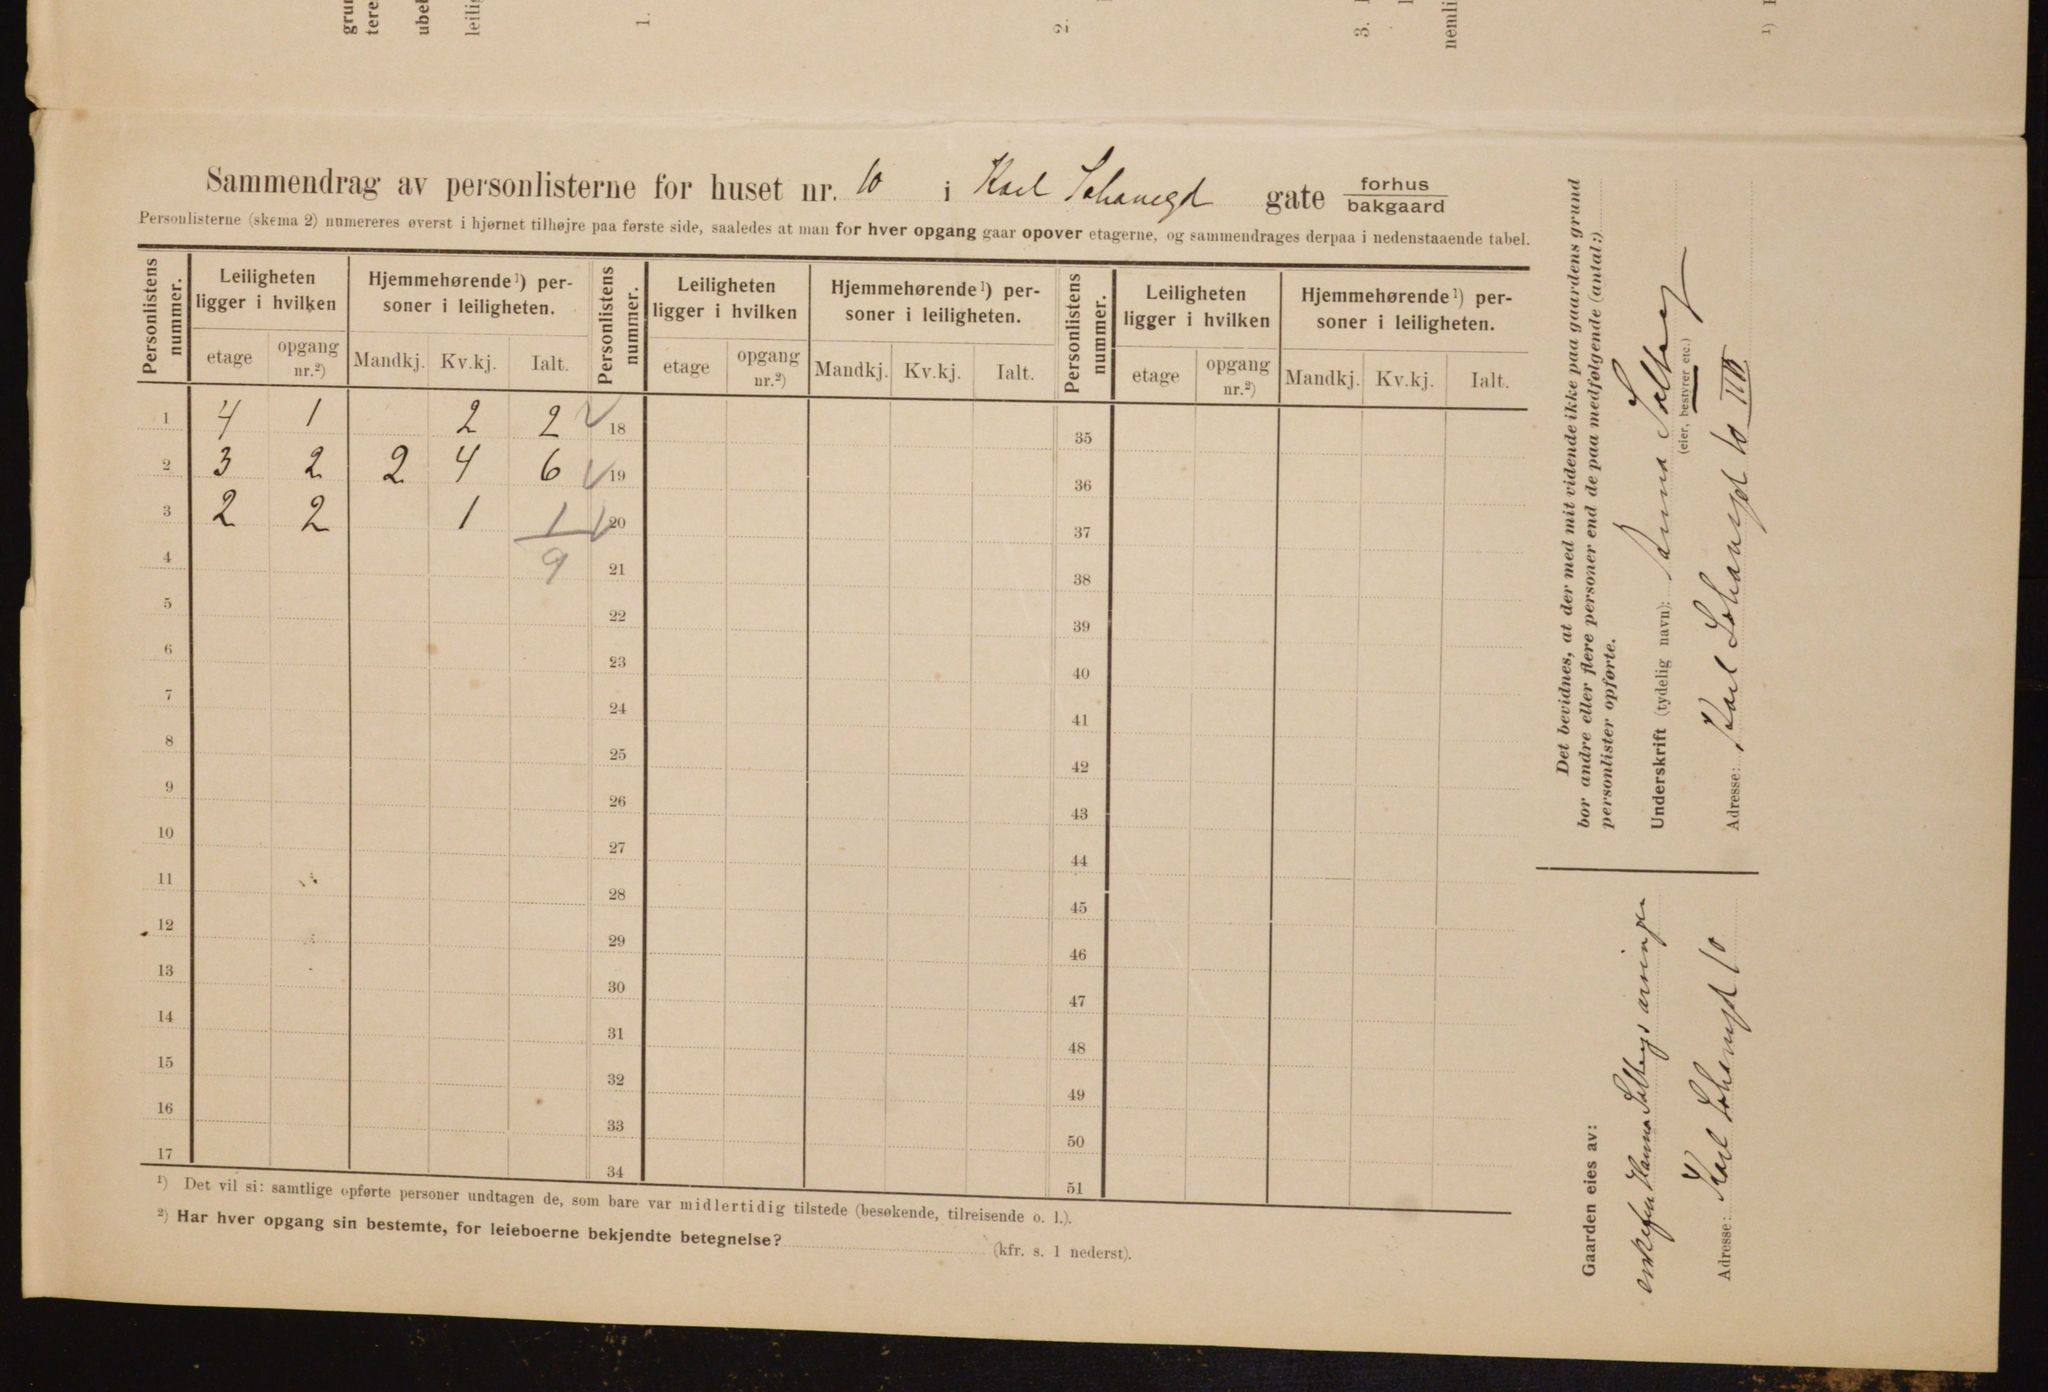 grun
tere
ubel
leilig
1.
2.
3.
nemli
1)
Sammendrag av personlisterne for huset nr. 10 i Karl Johansgd gate forhus
bakgaard
Personlisterne (skema 2) numereres øverst i hjørnet tilhøjre paa første side, saaledes at man for hver opgang gaar opover etagerne, og sammendrages derpaa i nedenstaaende tabel.
Personlistens nummer. Leiligheten ligger i hvilken Hjemmehørende¹) personer i leiligheten. Personlistens nummer. Leiligheten ligger i hvilken Hjemmehørende¹) personer i leiligheten. Personlistens nummer. Leiligheten ligger i hvilken Hjemmehørende¹) personer i leiligheten.
etage opgang nr.²) Mandkj. Kv.kj. Ialt. etage opgang nr.²) Mandkj. Kv.kj. Ialt. etage opgang nr.²) Mandkj. Kv.kj. Ialt.
1 4 1 2 2 18 35
2 3 2 2 4 6 19 36
3 2 2 1 1 20 37
4 9 21 38
5 22 39
6 23 40
7 24 41
8 25 42
9 26 43
10 27 44
11 28 45
12 29 46
13 30 47
14 31 48
15 32 49
16 33 50
17 34 51
¹) Det vil si: samtlige opførte personer undtagen de, som bare var midlertidig tilstede (besøkende, tilreisende o. l.).
²) Har hver opgang sin bestemte, for leieboerne bekjendte betegnelse? (kfr. s. 1 nederst).
Det bevidnes, at der med mit vidende ikke paa gaardens grund
bor andre eller flere personer end de paa medfølgende (antal:)
personlister opførte.
Underskrift (tydelig navn): Hanna Solberg
(eier, bestyrer etc.)
Adresse: Karl Johansgd 10 III
Gaarden eies av:
Hanna Solbergs arvinger
Adresse: Karl Johansgd 10